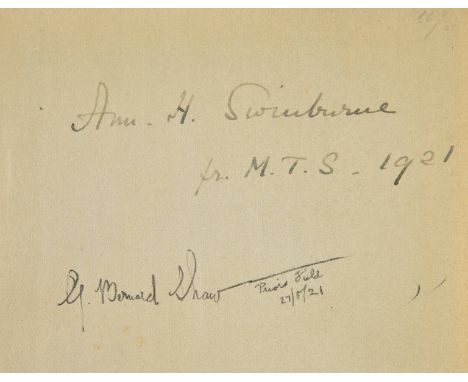 Ann. H. Swinburne
fr. M.T.S. - 1921
G. Bernard Shaw
Priors Field
27/5/21